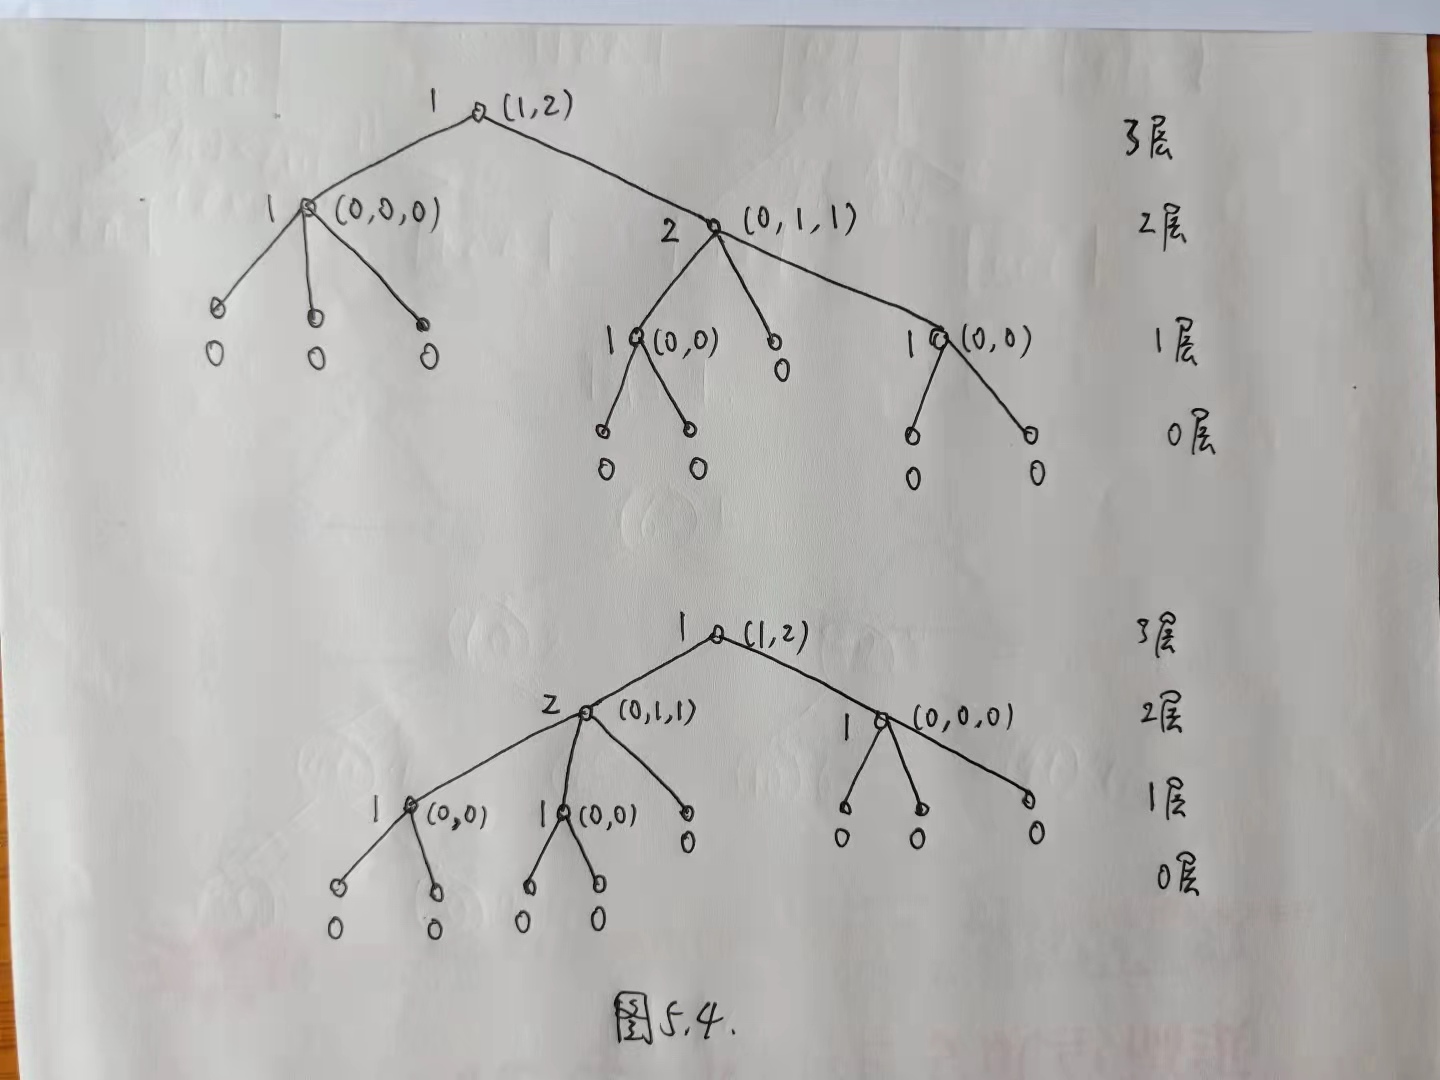 1 (1,2) 3层
1 (0,0,0) 2 (0,1,1) 2层
0 0 0 1 (0,0) 0 1 (0,0) 1层
0 0 0 0 0层
1 (1,2) 3层
2 (0,1,1) 1 (0,0,0) 2层
1 (0,0) 1 (0,0) 0 0 0 0 1层
0 0 0 0 0层
图5.4.